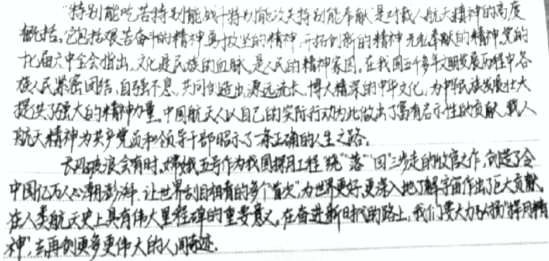 "特别能吃苦特别能战斗特别能攻关特别能奉献"是对载人航天精神的高度
概括。它包括艰苦奋斗的精神勇于攻坚的精神开拓创新的精神无私奉献的精神。党的
十七届六中全会指出,文化是民族的血脉,是人民的精神家园。在我国五千多年文明发展历程中各
族人民紧密团结,自强不息,共同创造出源远流长、博大精深的中华文化,为中华民族发展壮大
提供了强大的精神力量。中国航天人以自己的实际行动为此做出了富有启示性的贡献。载人
航天精神为共产党员和领导干部昭示了一条正确的人生之路。
长风破浪会有时,嫦娥五号作为我国探月工程绕"落"回三步走的收官之作,创造了令
中国亿万人心潮澎湃,让世界刮目相看的多个"首次",为世界更好,更深入地了解宇宙作出了巨大贡献,
在人类航天史上具有伟大里程碑的重要意义。在奋进新时代的路上,我们要大力弘扬"探月精
神",去再创更多更伟大的人间奇迹。